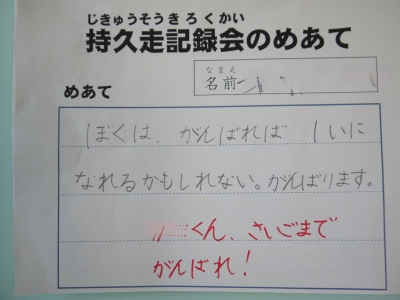 じきゅうそうきろくかい
持久走記録会のめあて
なまえ
名前
めあて
ぼくは、がんばれば 1いに
なれるかもしれない。がんばります。
くん、さいごまで
がんばれ!